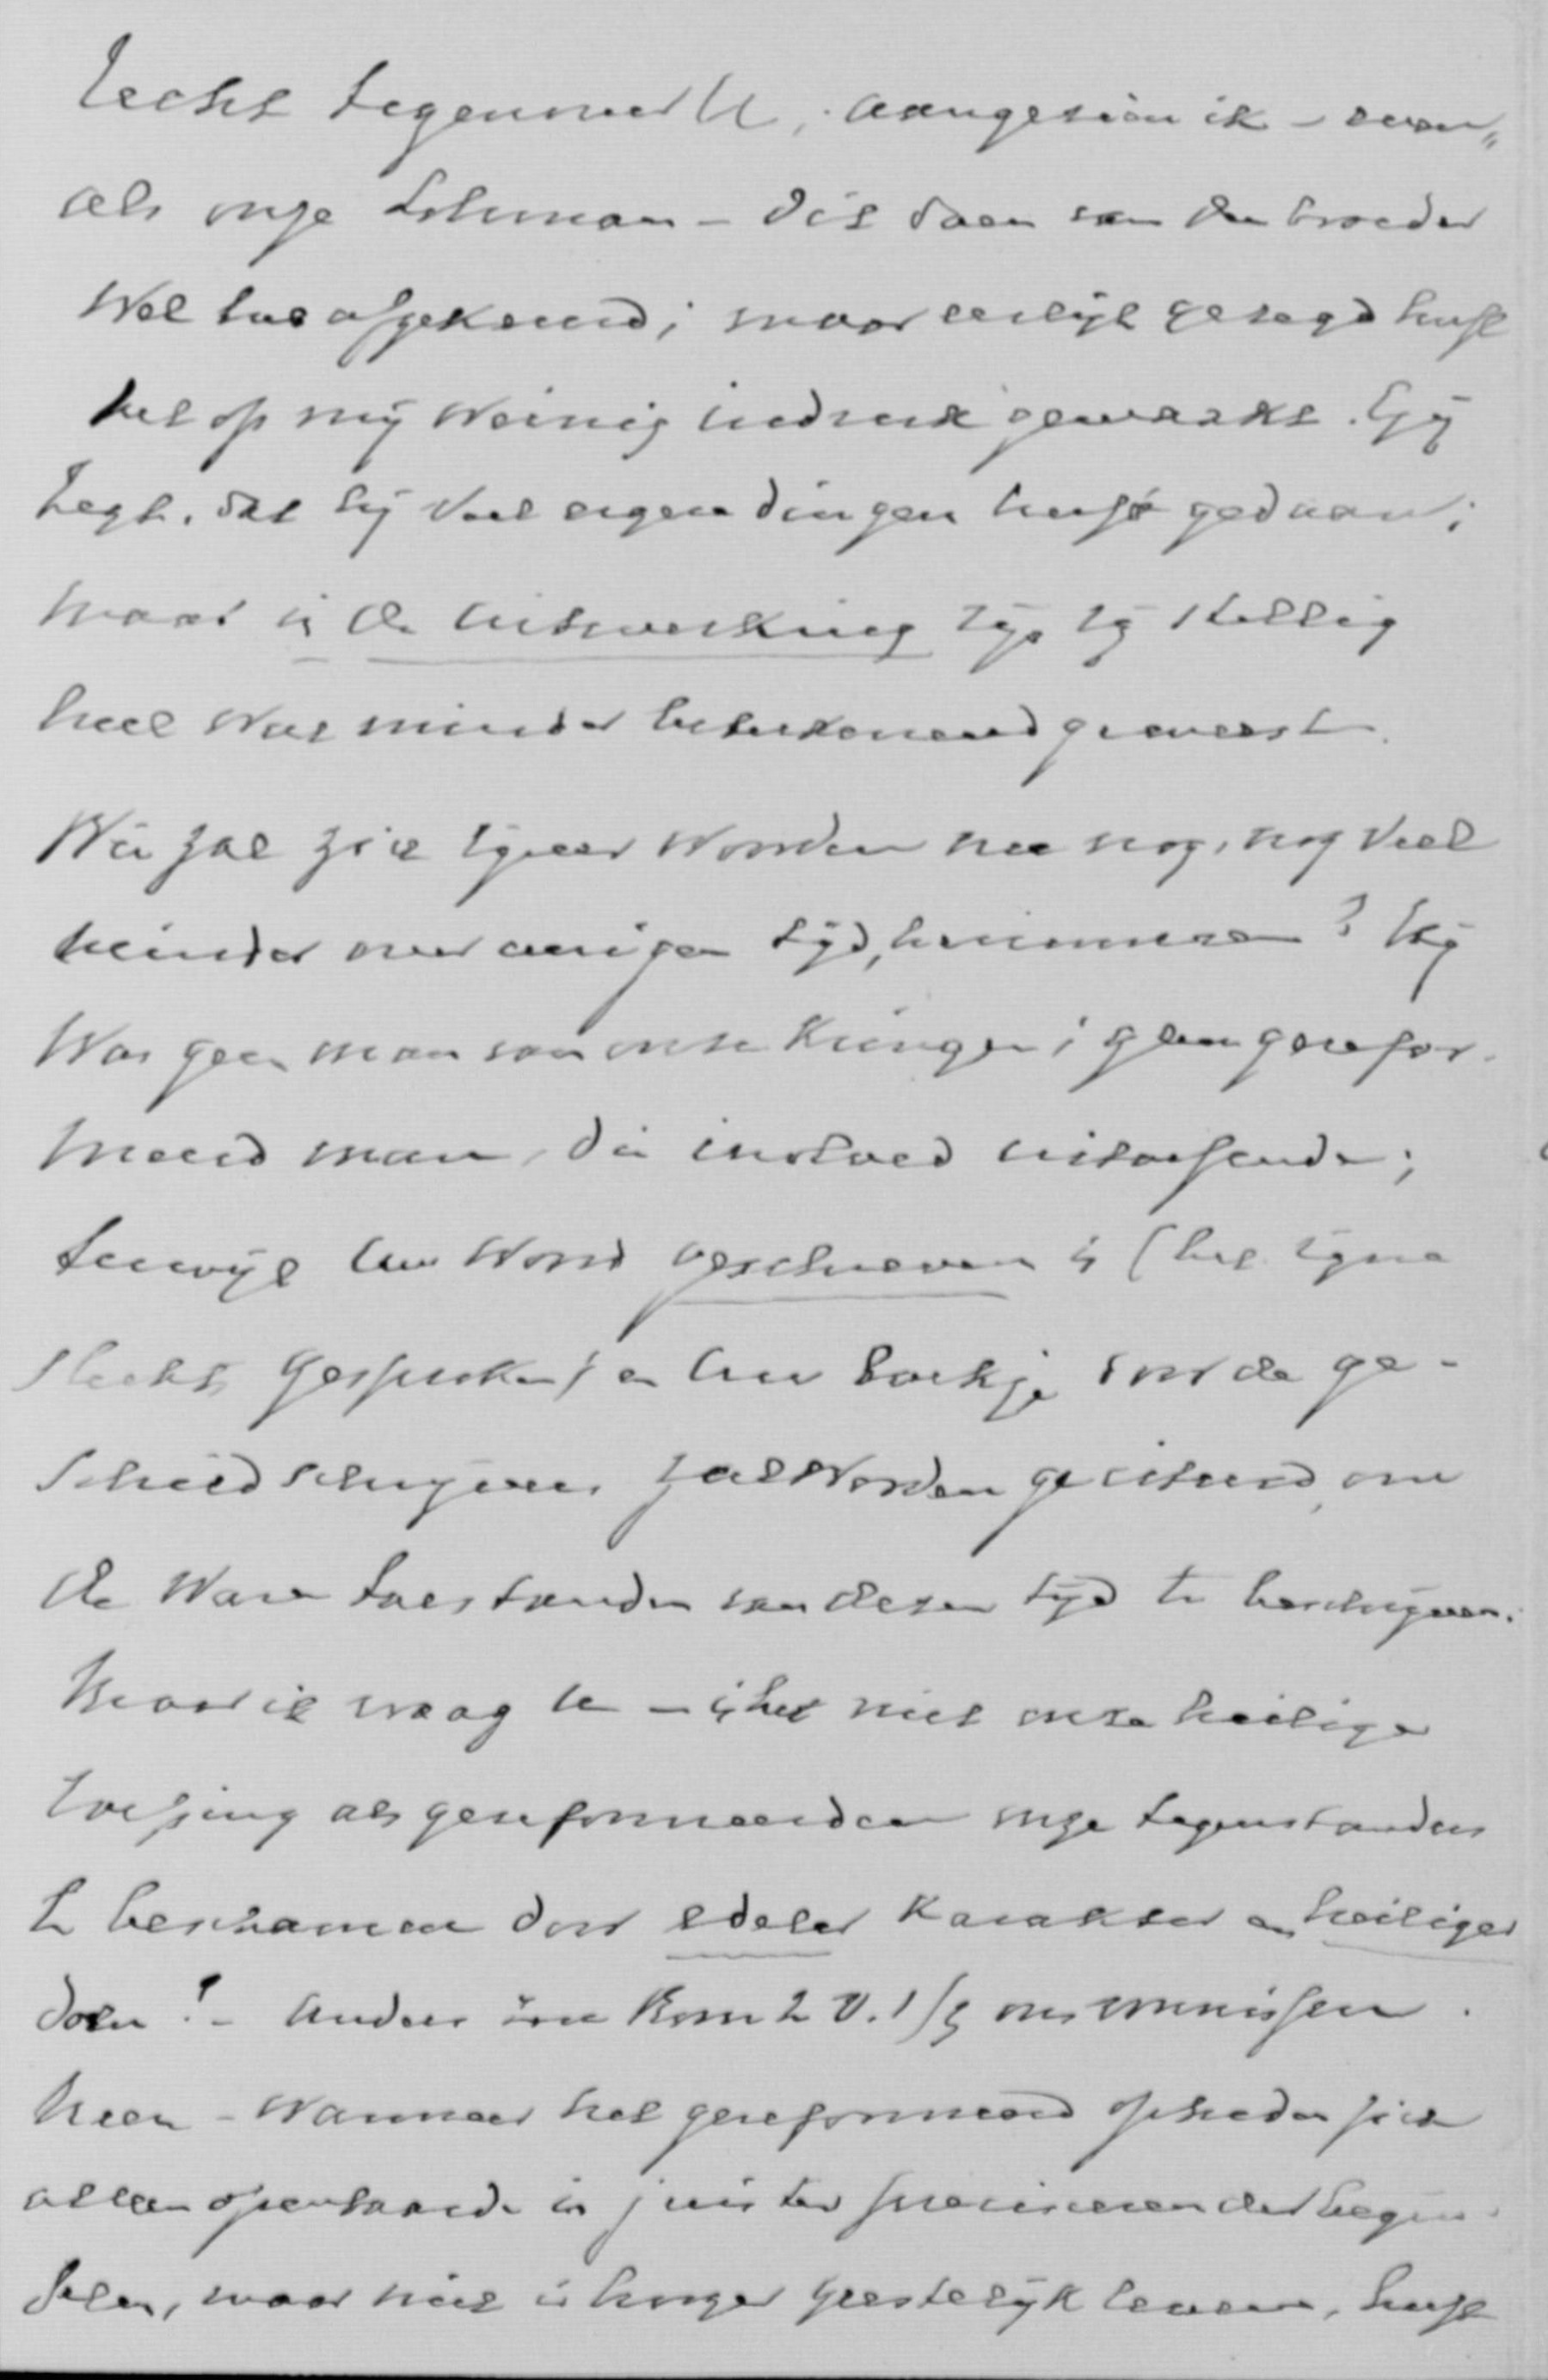 slecht tegenover U, aangezien ik – even„
als onze Lohman – dit doen van den broeder
wel had afgekeurd; maar eerlijk gezegd heeft
het op mij weinig indruk gemaakt. Gij
zegt, dat hij veel ergere dingen heeft gedaan;
maar in de uitwerking zijn zij stellig
heel wat minder beteekenend geweest.
Wie zal zich zijner woorden nu nog, nog veel
minder over eenigen tijd, herinneren? Hij
was geen man van onze kringen; geen gerefor-
meerd man, die invloed uitoefende;
terwijl Uw woord geschreven is (het zijne
slechts gesproken) en Uw boekje door de ge-
schiedschrijvers zal worden geciteerd, om
de ware toestanden van dezen tijd te beschrijven.
Maar ik vraag U – is het niet onze heilige
roeping als gereformeerden onze tegenstanders
te beschamen door edeler karakter en heiliger
doen? – Anders zou Rom 2 v. 1/3 ons vonnissen.
Neen – wanneer het gereformeerd optreden zich
alleen openbaarde in juister preciseeren der begin-
selen, maar niet in hooger geestelijk leven, heeft